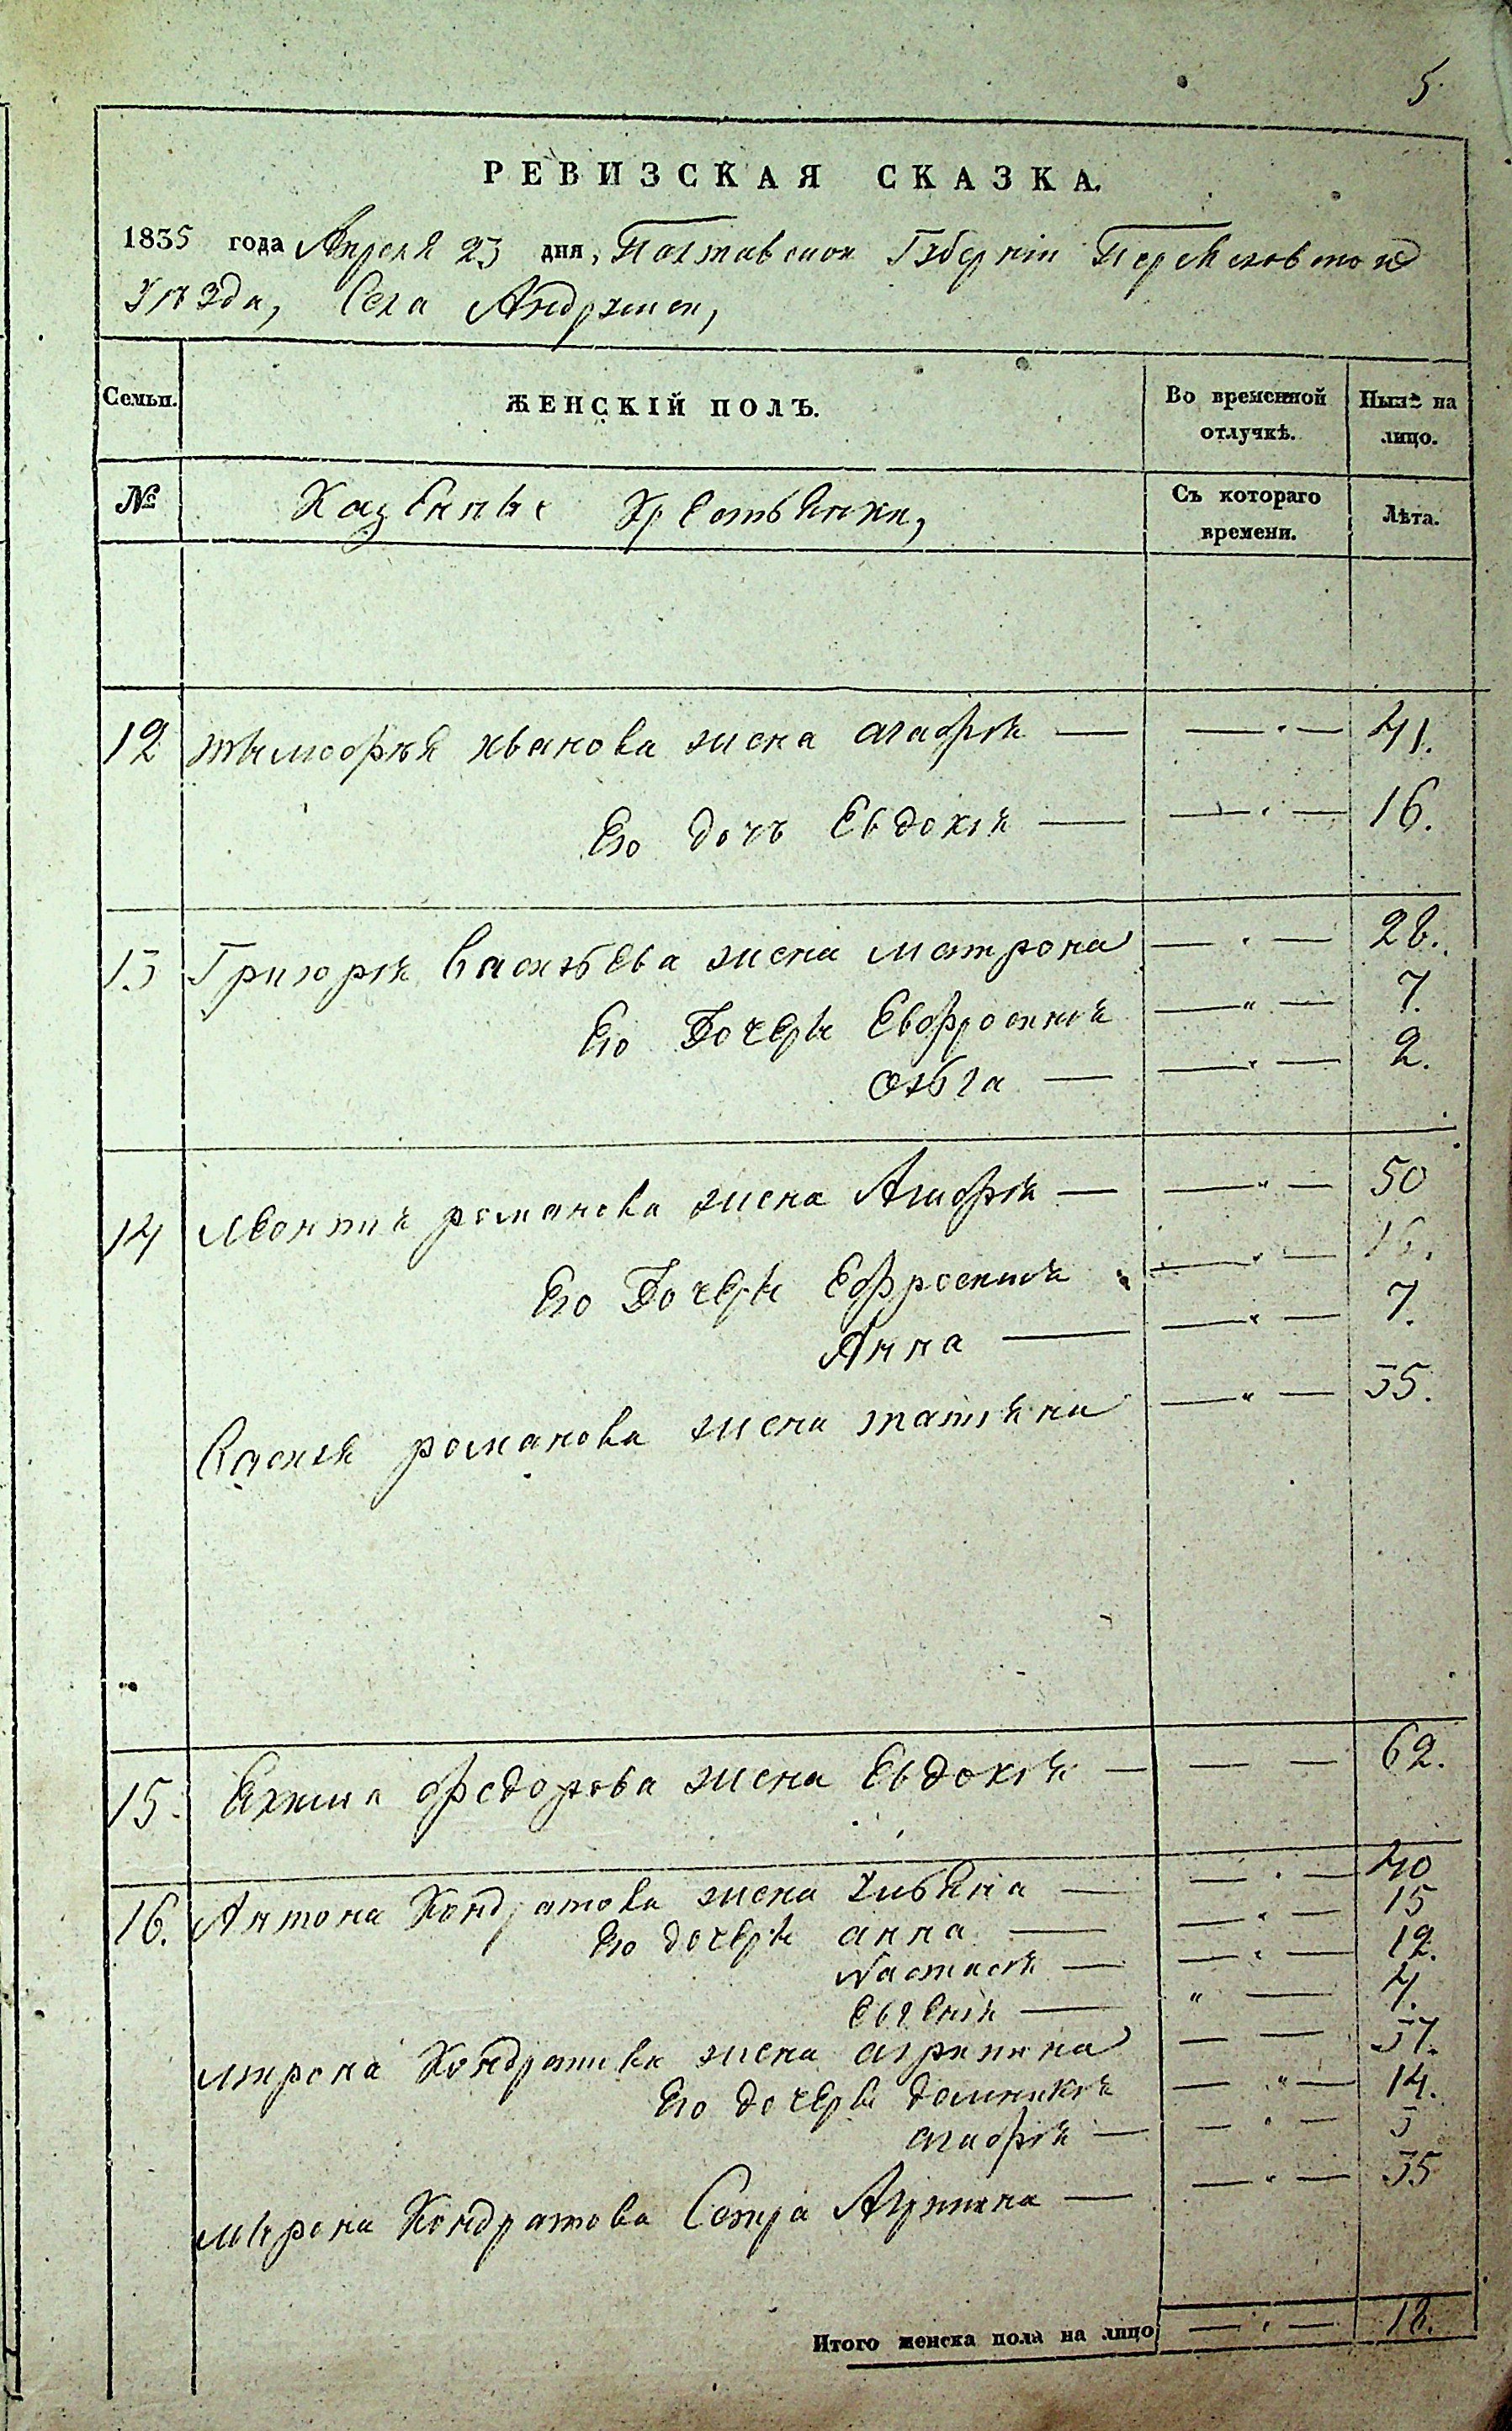 5
РЕВИЗСКАЯ СКАЗКА.
1835 года Апреля 23 дня, Полтавской Губернии
Уезда, Села Андруши,
Семьи. ЖЕНСКІЙ ПОЛЪ. Во временной отлучкѣ. Нынѣ на лицо.
№ Казенные Крестьянки, Съ котораго времени. Лѣта.
12 тымофѣя иванова жена агафія — — " — 41.
Его дочь Евдокія — — " — 16.
13 Григорія Васильева жена матрона — " — 28.
Его Дочери Евфросинія — " — 7.
Ольга — — " — 2.
14 Леонтія романова жена Агафія — — " — 50
Его Дочери Ефросинія — " — 16.
Анна — — " — 7.
Василя романова жена татіяна — " — 35.
15. федорова жена Евдокія — — — 62.
16. Антона Кондратова жена улияна — — " — 40
Его дочери анна — — " — 15
Настасія — — " — 12.
Евгенія — " — 4.
мирона Кондратова жена агрипина — — 37.
Его дочери домникія — " — 14.
агафія — — " — 3
мирона Кондратова Сестра Агрипина — — " — 35
Итого женска пола на лицо — " — 18.